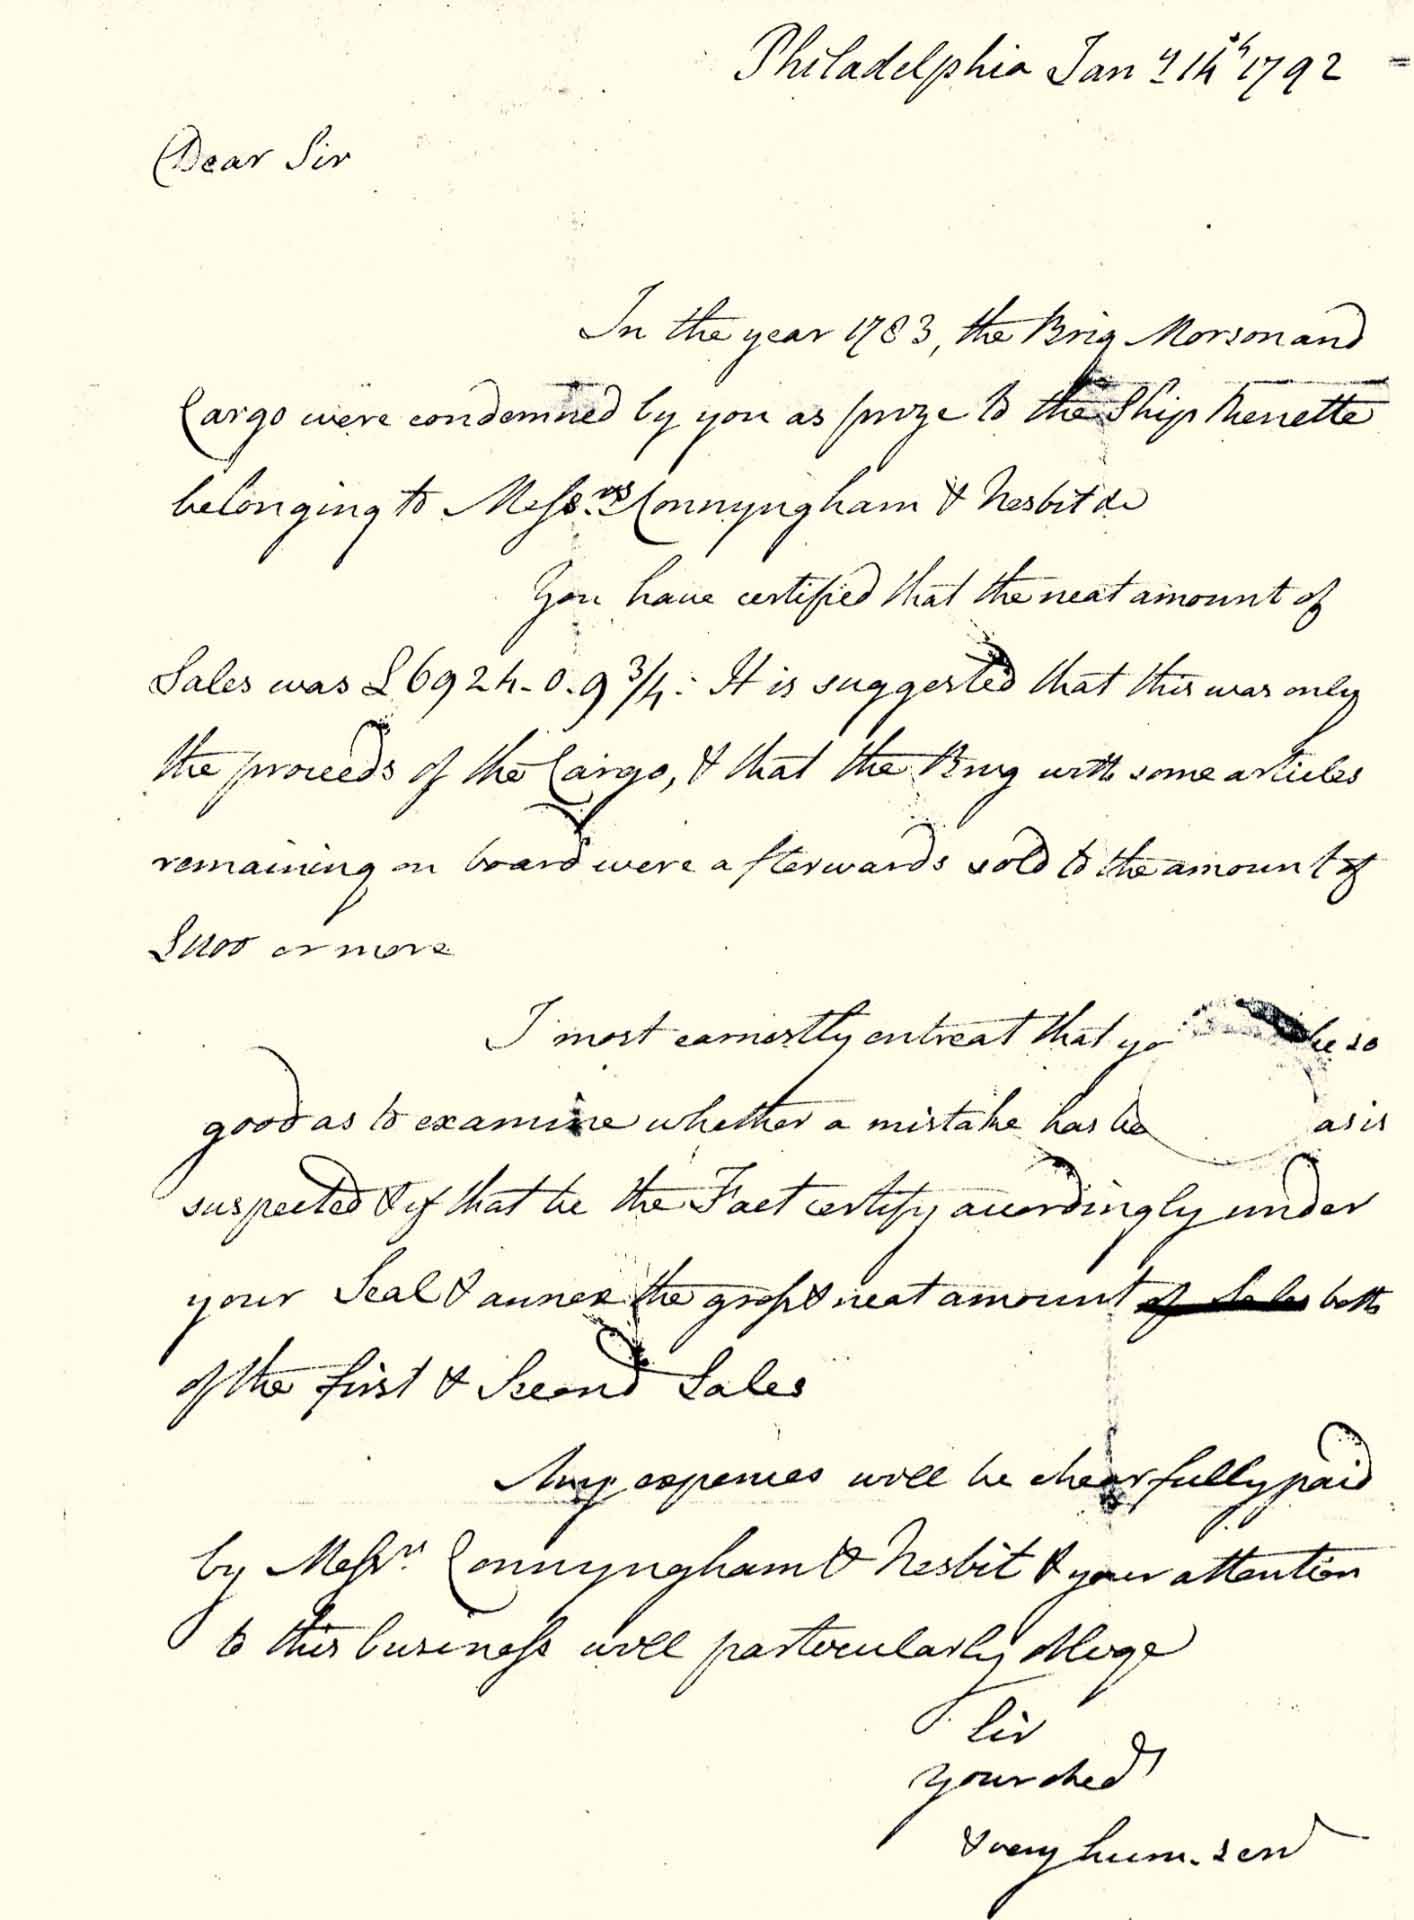 Philadelphia Jany 14th 1792
Dear Sir
In the year 1783, the Brig Morson and
Cargo were condemned by you as prize to the Ship
belonging to Messrs Connyngham & Nesbit &c
You have certified that the neat amount of
Sales was £6924-0-9 3/4: It is suggested that this was only
the proceeds of the Cargo, & that the Brig with some articles
remaining on board were afterwards sold to the amount of
£1100 or more
I most earnestly entreat that yo be so
good as to examine whether a mistake has be as is
suspected & if that be the Fact certify accordingly under
your Seal & annex the gross & neat amount of Sales both
of the first & Second Sales
Any expences will be chearfully paid
by Messrs Connyngham & Nesbit & your attention
to this business will particularly oblige
Sir
Your obed
& very hum. serv